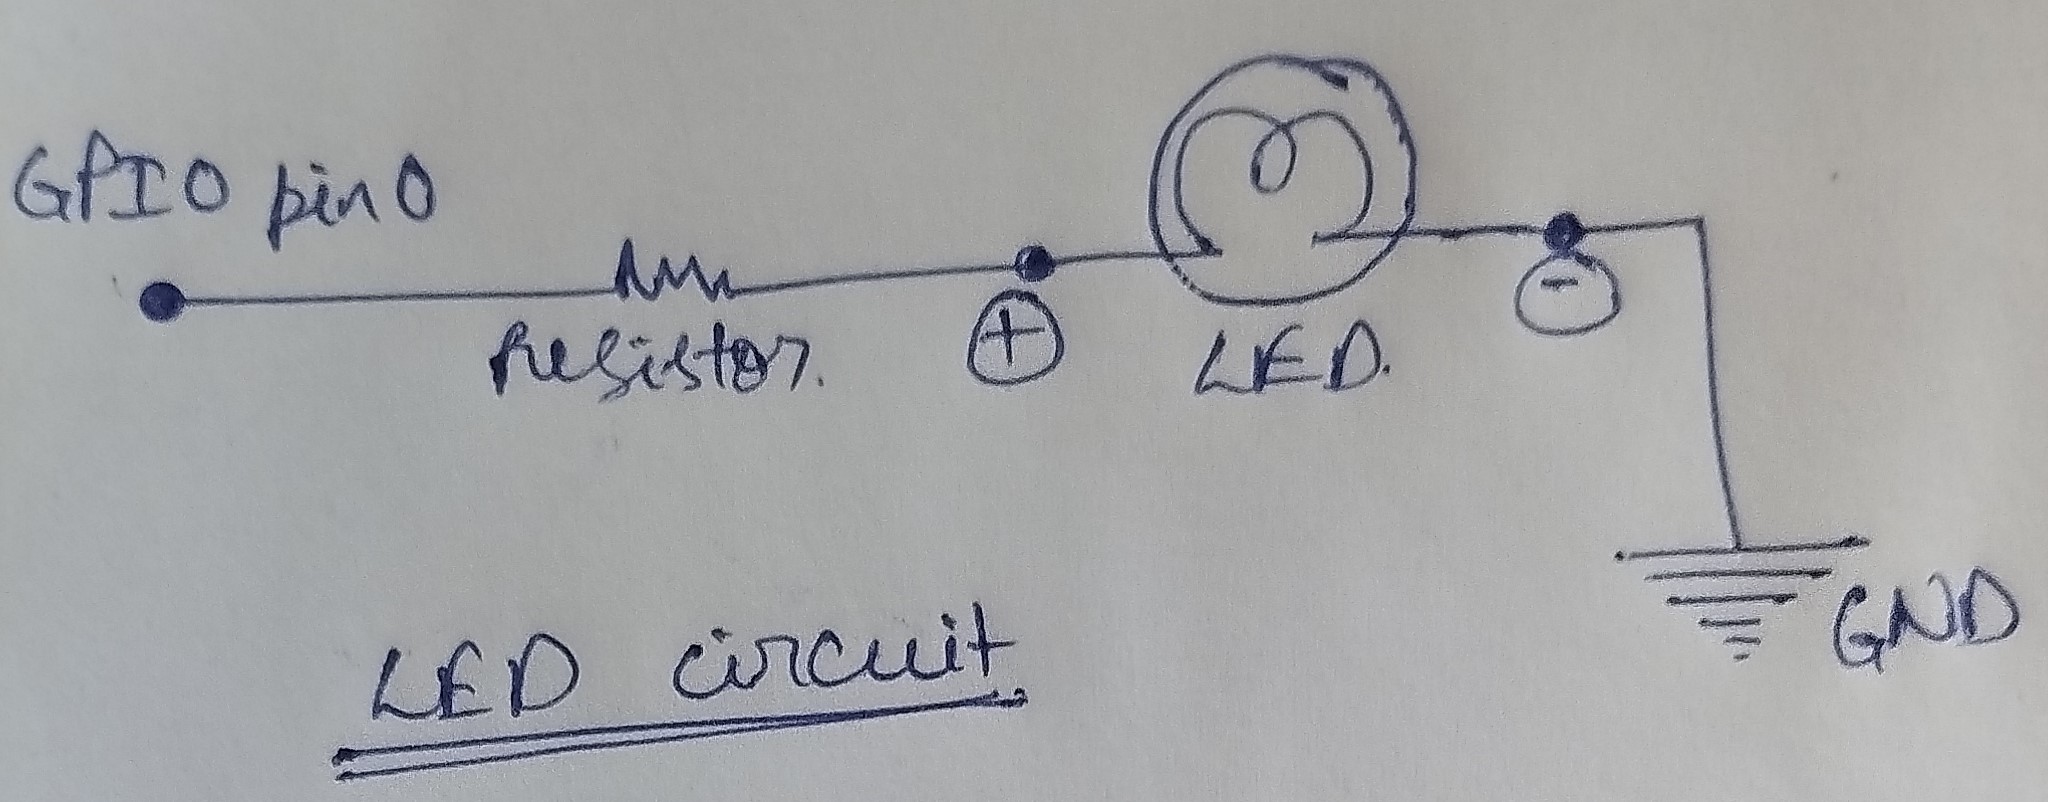 GPIO pin 0
Resistor.
+
LED.
-
GND
LED circuit